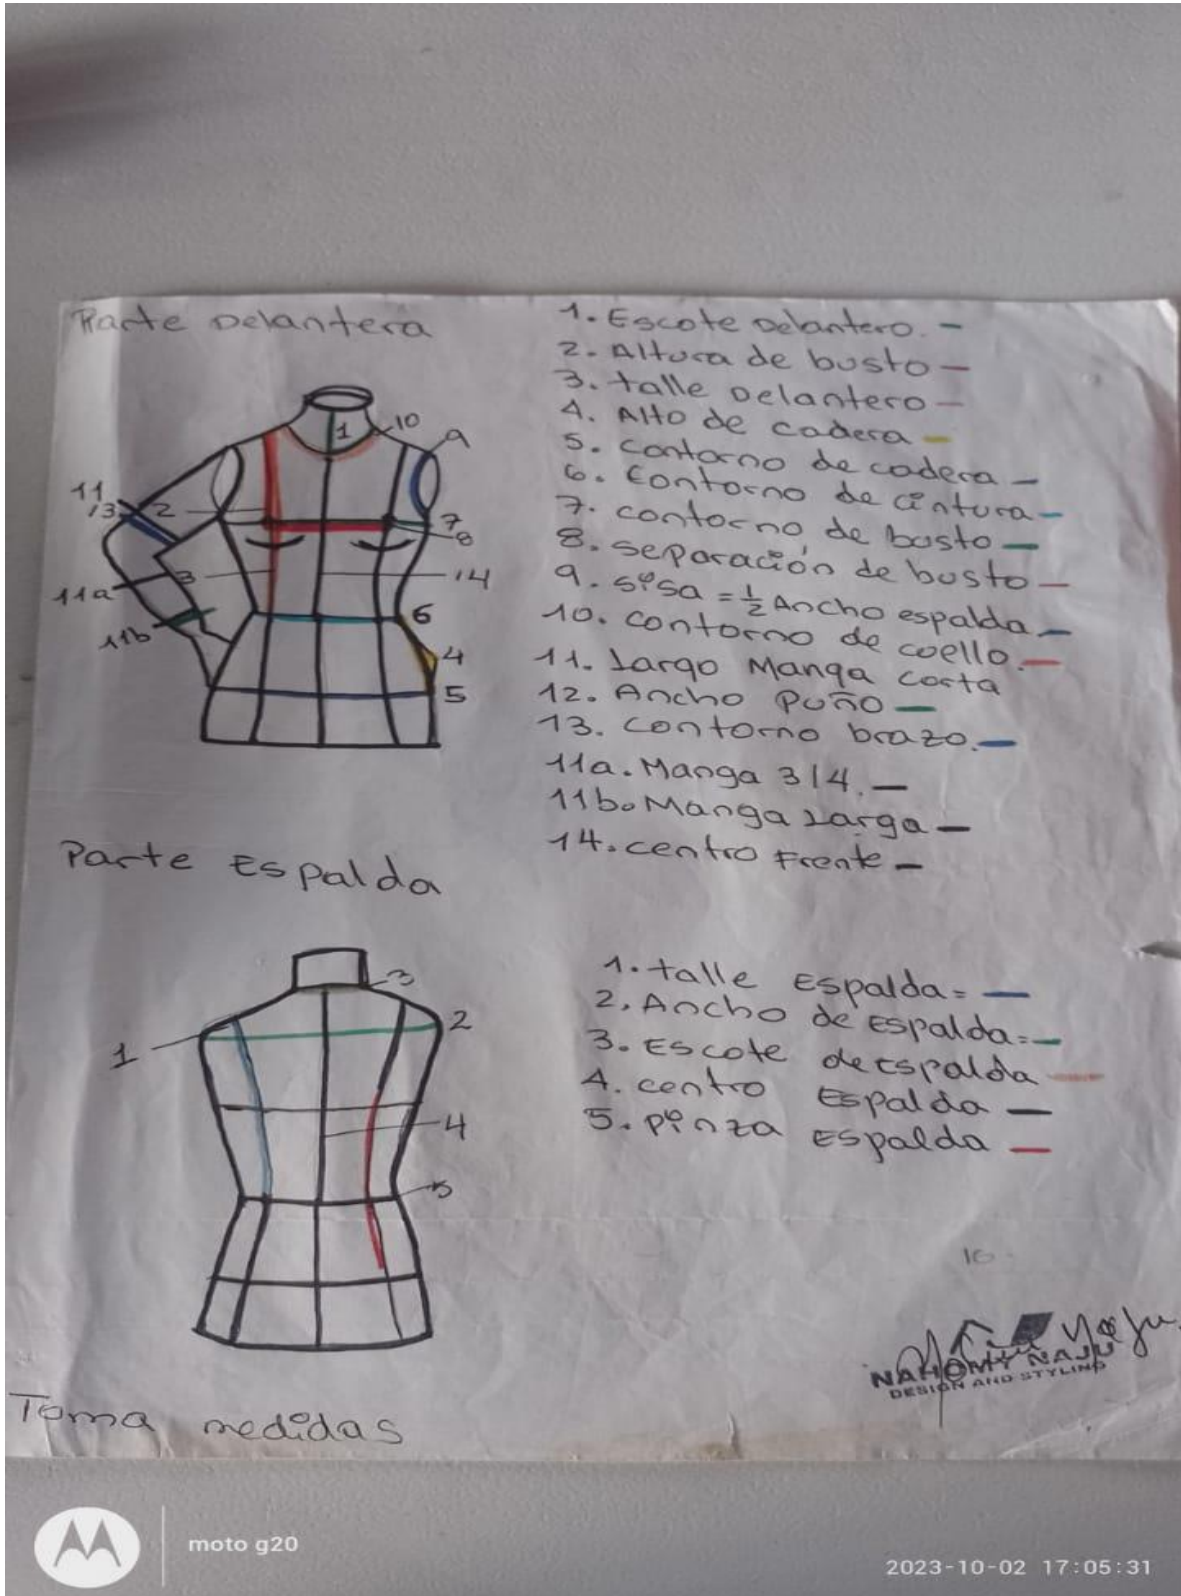 Parte Delantera
1. Escote Delantero. -
2. Altura de busto -
3. talle Delantero -
4. Alto de cadera -
5. contorno de cadera -
6. Contorno de cintura -
7. contorno de busto -
8. separación de busto -
9. sisa = 1/2 Ancho espalda -
10. contorno de cuello. -
11. Largo Manga corta
12. Ancho Puño -
13. contorno brazo. -
11a. Manga 3/4. -
11b. Manga Larga -
14. centro Frente -
1
10
9
11
13
2
7
8
3
14
11a
6
11b
4
5
Parte Espalda
1. talle Espalda = -
2. Ancho de Espalda = -
3. Escote de Espalda -
4. centro Espalda -
5. pinza Espalda -
3
2
1
4
5
16
NAHOMY NAJU
DESIGN AND STYLING
Toma medidas
moto g20
2023-10-02 17:05:31